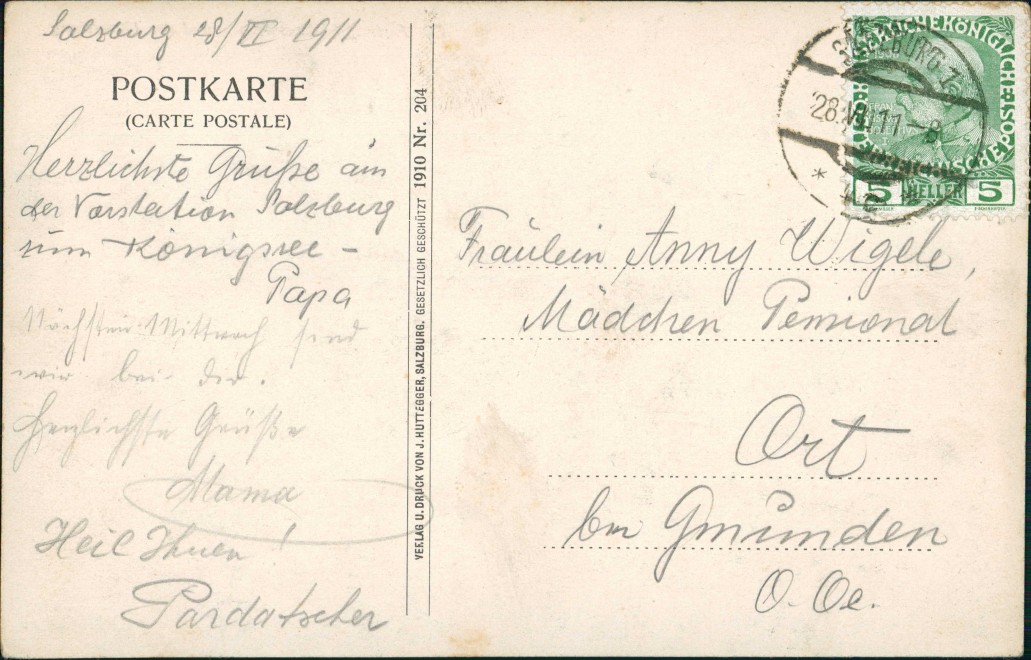 Salzburg 28/VI 1911
POSTKARTE
(CARTE POSTALE)
Herzlichste Grüße aus
der Vorstation Salzburg
zum Königssee –
Papa
Nächsten Mittwoch sind
wir bei dir.
Herzlichste Grüße
Mama
Heil Ihnen!
Pardatscher
VERLAG U. DRUCK VON J. HUTTEGGER, SALZBURG. GESETZLICH GESCHÜTZT 1910 Nr. 204
SALZBURG 1
28.VI.11–8
5 HELLER 5
Fräulein Anny Wigele,
Mädchen Pensionat
Ort
bei Gmunden
O. Oe.